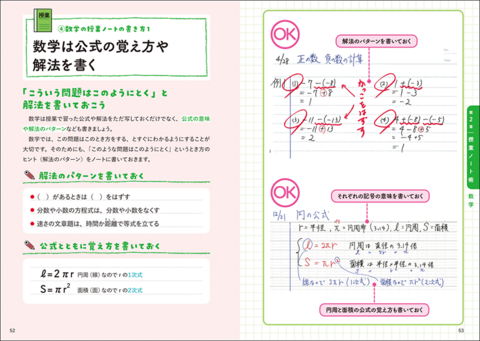 授業
④数学の授業ノートの書き方1
数学は公式の覚え方や
解法を書く
「こういう問題はこのようにとく」と
解法を書いておこう
数学は授業で習った公式や解法をただ写しておくだけでなく、公式の意味
や解法のパターンなども書きましょう。
数学では、この問題はこのとき方をする、とすぐにわかるようにすることが
大切です。そのためにも、「このような問題はこのようにとく」というとき方の
ヒント（解法のパターン）をノートに書いておきます。
解法のパターンを書いておく
●（　）があるときは（　）をはずす
●分数や小数の方程式は、分数や小数をなくす
●速さの文章題は、時間か距離で等式を立てる
公式とともに覚え方を書いておく
ℓ=2πr 円周（線）なのでrの1次式
S=πr² 面積（面）なのでrの2次式
52
OK
解法のパターンを書いておく
4/28 正の数、負の数の計算
例1
(1) -7-(-8)
= -7+8
= 1
(2) 1+(-3)
= 1-3
= -2
かっこをはずす
(3) -11-(-13)
= -11+13
= 2
(4) 4+(-8)-(-5)
= 4-8+5
= -4+5
= 1
OK
それぞれの記号の意味を書いておく
12/1 円の公式
r=半径、π=円周率(3.14)、ℓ=円周、S=面積
ℓ=2πr 円周は直径の3.14倍
S=πr² 面積は半径×半径の3.14倍
線なので 2πr(1次式) 面積なので πr²(2次式)
円周と面積の公式の覚え方も書いておく
第2章 授業ノート術
数学
53